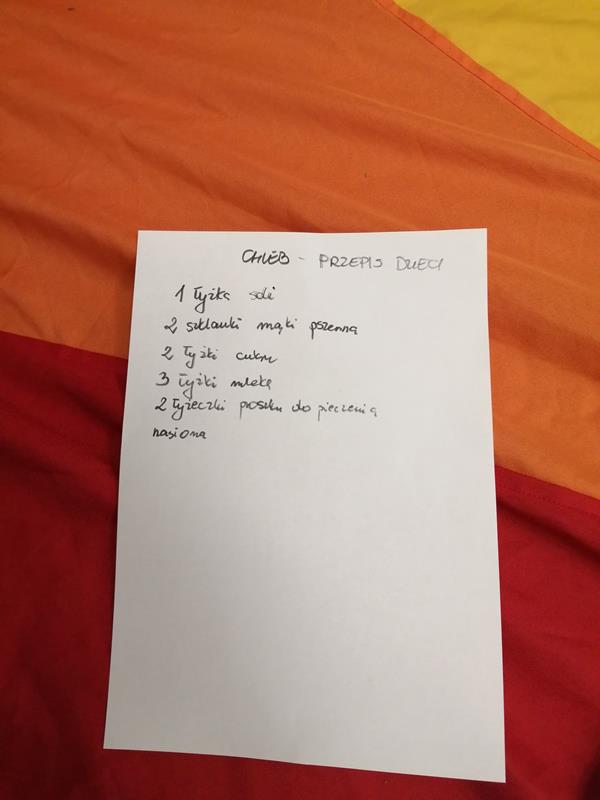 CHLEB - PRZEPIS DZIECI
1 łyżka soli
2 szklanki mąki pszenną
2 łyżki cukru
3 łyżki mleka
2 łyżeczki proszku do pieczenia
nasiona